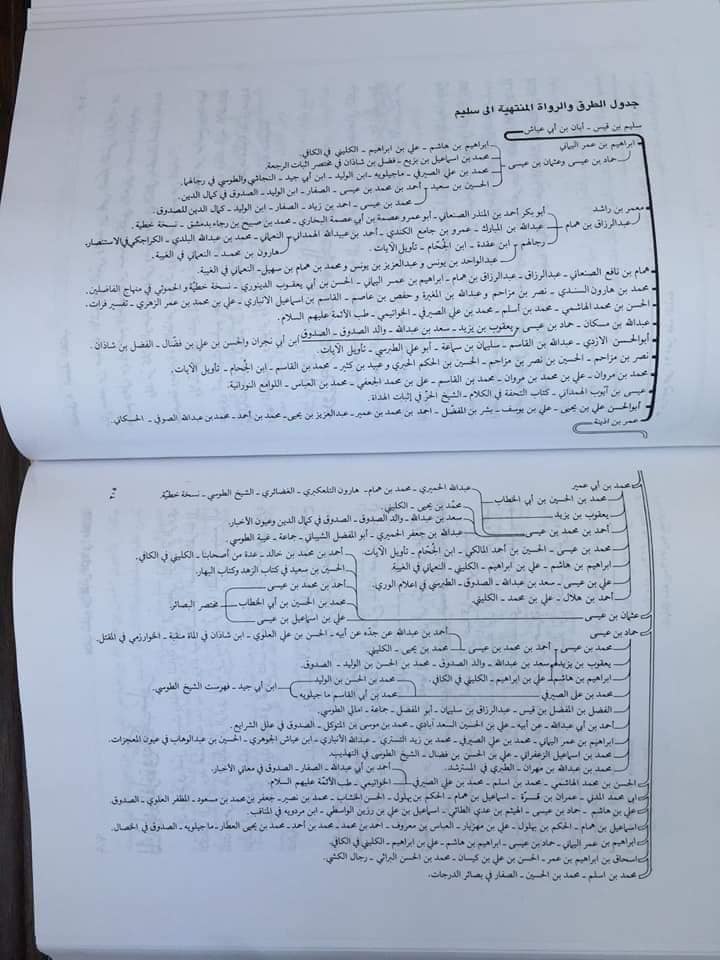 جدول الطرق والرواة المنتهية الى سليم
سليم بن قيس ـ أبان بن أبي عياش
ابراهيم بن عمر اليماني
حماد بن عيسى وعثمان بن عيسى
ابراهيم بن هاشم ـ علي بن ابراهيم ـ الكليني في الكافي.
محمد بن اسماعيل بن بزيع ـ فضل بن شاذان في مختصر اثبات الرجعة.
محمد بن علي الصيرفي ـ ماجيلويه ـ ابن الوليد ـ ابن أبي جيد ـ النجاشي والطوسي في رجالهما.
الحسين بن سعيد
أحمد بن محمد بن عيسى ـ الصفار ـ ابن الوليد ـ الصدوق في كمال الدين.
محمد بن عيسى ـ احمد بن زياد ـ الصفار ـ ابن الوليد ـ كمال الدين للصدوق.
معمر بن راشد
عبدالرزاق بن همام
أبو بكر أحمد بن المنذر الصنعاني ـ أبو عمرو عصمة بن أبي عصمة البخاري ـ محمد بن صبيح بن رجاء بدمشق ـ نسخة خطية.
عبدالله بن المبارك ـ عمرو بن جامع الكندي ـ أحمد بن عبيدالله الهمداني
النعماني ـ محمد بن عبدالله البلدي ـ الكراجكي في الاستنصار.
هارون بن محمد ـ النعماني في الغيبة.
رجالهم ـ ابن عقدة ـ ابن الجُحام ـ تأويل الآيات.
عبدالواحد بن يونس وعبدالعزيز بن يونس و محمد بن همام بن سهيل ـ النعماني في الغيبة.
همام بن نافع الصنعاني ـ عبدالرزاق ـ عبدالرزاق بن همام ـ ابراهيم بن عمر اليماني ـ الحسن بن أبي يعقوب الدينوري ـ نسخة خطيّة و الحموئي في منهاج الفاضلين.
محمد بن هارون السندي ـ نصر بن مزاحم و عبدالله بن المغيرة و حفص بن عاصم ـ القاسم بن اسماعيل الانباري ـ علي بن محمد بن عمر الزهري ـ تفسير فرات.
الحسن بن محمد الهاشمي ـ محمد بن أسلم ـ محمد بن علي الصيرفي ـ الخواتيمي ـ طب الأئمة عليهم السلام.
عبدالله بن مسكان ـ حماد بن عيسى و يعقوب بن يزيد ـ سعد بن عبدالله ـ والد الصدوق ـ الصدوق
ابن أبي نجران والحسن بن علي بن فضّال ـ الفضل بن شاذان.
أبوالحسن الازدي ـ عبدالله بن القاسم ـ سليمان بن سماعة ـ أبو علي الطبرسي ـ تأويل الآيات.
نصر بن مزاحم ـ الحسين بن نصر بن مزاحم ـ الحسين بن الحكم الحبري و عبيد بن كثير ـ محمد بن القاسم ـ ابن الجُحام ـ تأويل الآيات.
محمد بن مروان ـ علي بن محمد بن مروان ـ محمد بن القاسم ـ على بن محمد الجعفي ـ محمد بن العباس ـ اللوامع النورانية.
عيسى بن أيّوب الهمداني ـ كتاب التحفة في الكلام ـ الشيخ الحرّ في إثبات الهداة.
أبوالحسن علي بن يحيى ـ علي بن يوسف ـ بشر بن المفضّل ـ احمد بن محمد بن عمير ـ عبدالعزيز بن يحيى ـ محمد بن أحمد ـ محمد بن عبدالله الصوفي ـ الحسكاني.
عمر بن اذينة
محمد بن أبي عمير
محمد بن الحسين بن أبي الخطاب
يعقوب بن يزيد
أحمد بن محمد بن عيسى
عبدالله الحميري ـ محمد بن همام ـ هارون التلعكبري ـ الغضائري ـ الشيخ الطوسي ـ نسخة خطيّة.
محمّد بن يحيى ـ الكليني.
سعد بن عبدالله ـ والد الصدوق ـ الصدوق في كمال الدين وعيون الأخبار.
عبدالله بن جعفر الحميري ـ أبو المفضل الشيباني ـ جماعة ـ غيبة الطوسي.
محمد بن عيسى ـ الحسين بن أحمد المالكي ـ ابن الجُحام ـ تأويل الآيات.
ابراهيم بن هاشم ـ علي بن ابراهيم ـ الكليني ـ النعماني في الغيبة.
علي بن عيسى ـ سعد بن عبدالله ـ الصدوق ـ الطبرسي في إعلام الوري.
أحمد بن هلال ـ علي بن محمد ـ الكليني.
عثمان بن عيسى
أحمد بن محمد بن خالد ـ عدة من أصحابنا ـ الكليني في الكافي.
الحسين بن سعيد في كتاب الزهد وكتاب البهار.
أحمد بن محمد بن عيسى
محمد بن الحسين بن أبي الخطاب
علي بن اسماعيل بن عيسى
مختصر البصائر.
حماد بن عيسى
أحمد بن عبدالله عن جدّه عن أبيه ـ الحسن بن علي العلوي ـ ابن شاذان في المائة منقبة ـ الخوارزمي في المقتل.
محمد بن عيسى ـ أحمد بن محمد بن عيسى ـ محمد بن يحيى ـ الكليني.
يعقوب بن يزيد
سعد بن عبدالله ـ والد الصدوق ـ محمد بن الحسن بن الوليد ـ الصدوق.
ابراهيم بن هاشم
علي بن ابراهيم ـ الكليني في الكافي.
محمد بن علي الصيرفي
محمد بن الحسن بن الوليد
محمد بن أبي القاسم ماجيلويه
ابن أبي جيد ـ فهرست الشيخ الطوسي.
الفضل بن المفضل بن قيس ـ عبدالرزاق بن سليمان ـ أبو المفضل ـ جماعة ـ امالي الطوسي.
أحمد بن أبي عبدالله ـ عن أبيه ـ علي بن الحسين السعد آبادي ـ محمد بن موسى بن المتوكل ـ الصدوق في علل الشرايع.
ابراهيم بن عمر اليماني ـ محمد بن علي الصيرفي ـ محمد بن زيد التستري ـ عبدالله الأنباري ـ ابن عياش الجوهري ـ الحسين بن عبدالوهاب في عيون المعجزات.
محمد بن اسماعيل الزعفراني ـ علي بن الحسن بن فضال ـ الشيخ الطوسي في التهذيب.
محمد بن عبدالله بن مهران ـ الطبري في المسترشد.
الحسن بن محمد الهاشمي ـ محمد بن اسلم ـ محمد بن علي الصيرفي
أحمد بن أبي عبدالله ـ الصفار ـ الصدوق في معاني الأخبار.
الخواتيمي ـ طب الأئمّة عليهم السلام.
أبي محمد المدني ـ عمران بن قرّة ـ اسماعيل بن همام ـ الحكم بن بهلول ـ الحسن الخشاب ـ محمد بن نصير ـ جعفر بن محمد بن مسعود ـ المظفر العلوي ـ الصدوق.
علي بن هاشم ـ حماد بن عيسى ـ الهيثم بن عدي الطائي ـ اسماعيل بن علي بن رزين الواسطي ـ ابن مردويه في المناقب.
اسماعيل بن همام ـ الحكم بن بهلول ـ علي بن مهزيار ـ العباس بن معروف ـ أحمد بن محمد ـ محمد بن أحمد ـ محمد بن يحيى العطار ـ ماجيلويه ـ الصدوق في الخصال.
ابراهيم بن عمر اليماني ـ حماد بن عيسى ـ ابراهيم بن هاشم ـ علي بن ابراهيم ـ الكليني في الكافي.
اسحاق بن ابراهيم بن عمر ـ الحسن بن علي بن كيسان ـ محمد بن الحسن البراثي ـ رجال الكشي.
محمد بن اسلم ـ محمد بن الحسين ـ الصفار في بصائر الدرجات.